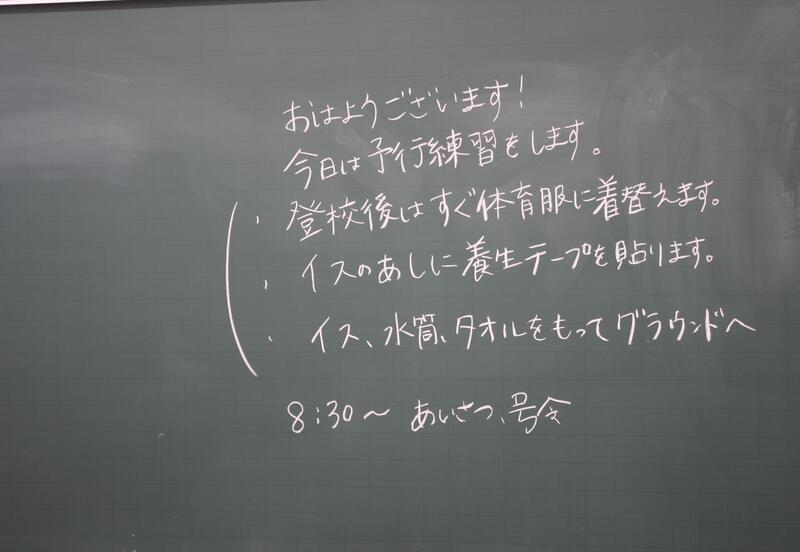 おはようございます!
今日は予行練習をします。
・登校後はすぐ体育服に着替えます。
・イスのあしに養生テープを貼ります。
・イス、水筒、タオルをもってグラウンドへ
8:30〜 あいさつ、号令